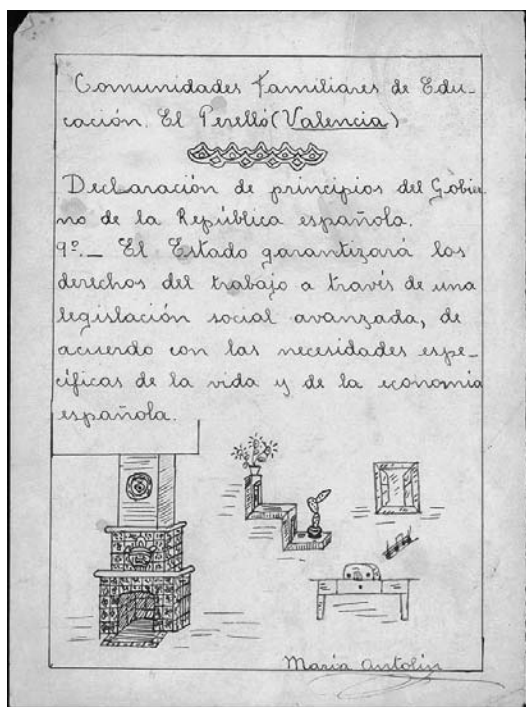 Comunidades Familiares de Edu-
cación. El Perelló (Valencia)
Declaración de principios del Gobier
no de la República española.
9º._ El Estado garantizará los
derechos del trabajo a través de una
legislación social avanzada, de
acuerdo con las necesidades espe-
cíficas de la vida y de la economía
española.
María Antolín